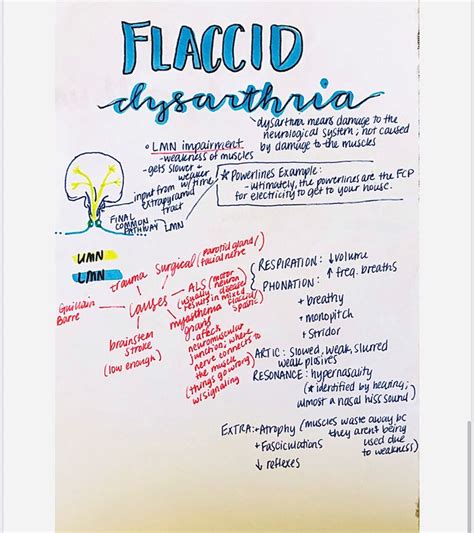 FLACCID
dysarthria
dysarthria means damage to the
neurological system; not caused
by damage to the muscles
LMN impairment
-weakness of muscles
-gets slower +
weaker
w/time
input from
extrapyramid
tract
FINAL
COMMON
PATHWAY
LMN
* Powerlines Example:
-ultimately, the powerlines are the FCP
for electricity to get to your house.
UMN
LMN
causes
trauma
surgical (parotid gland/
facial nerve)
Guillain
Barre
ALS (motor
neuron
disease
(usually
results in mixed
flaccid
spastic)
myasthenia
gravis
-affect
neuromuscular
junction; where
nerve connects to
the muscle
(things go wrong
w/signaling
brainstem
stroke
(low enough)
RESPIRATION: ↓volume
↑ freq. breaths
PHONATION:
+ breathy
+ monopitch
+ Stridor
ARTIC: slowed, weak, slurred
weak plosives
RESONANCE: hypernasality
(* identified by hearing;
almost a nasal hiss sound)
EXTRA: + Atrophy (muscles waste away bc
they aren't being
used due
to weakness)
+ Fasciculations
↓ reflexes